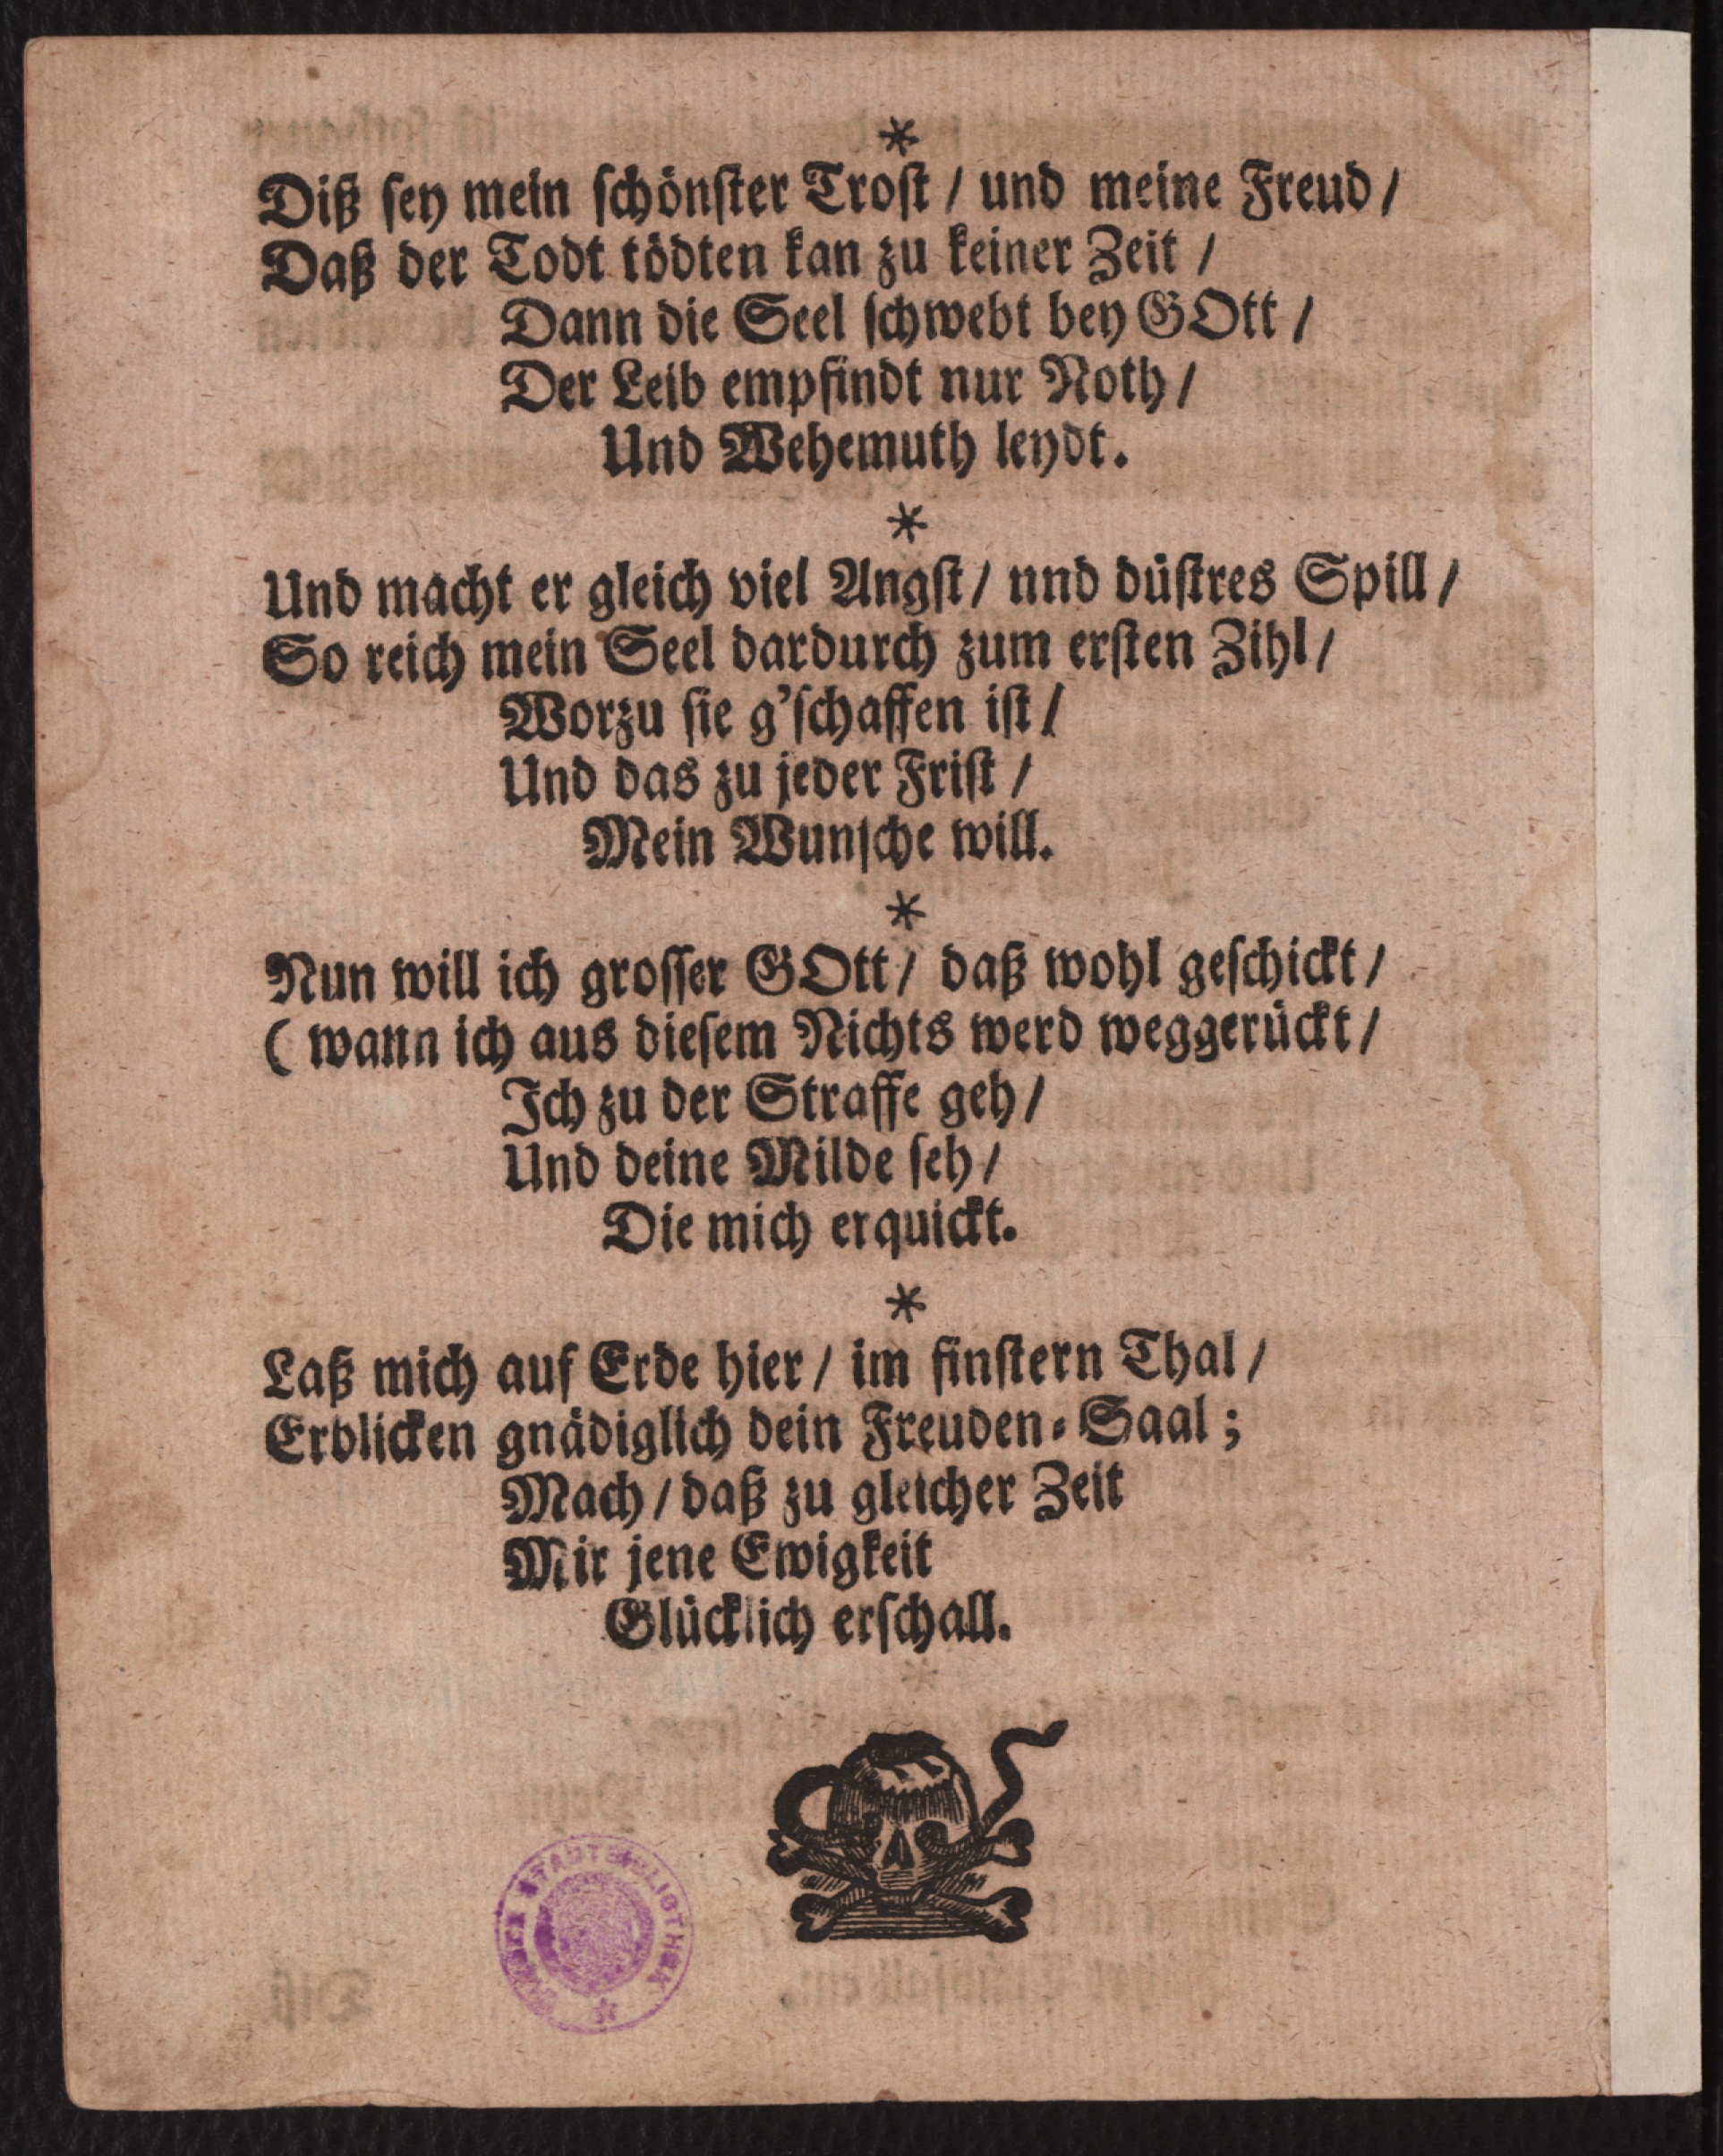 *
Diß ſey mein ſchönſter Troſt / und meine Freud /
Daß der Todt tödten kan zu keiner Zeit /
Dann die Seel ſchwebt bey GOtt /
Der Leib empfindt nur Noth /
Und Wehemuth leydt.
*
Und macht er gleich viel Angſt / nnd düſtres Spill /
So reich mein Seel dardurch zum erſten Zihl /
Worzu ſie g'ſchaffen iſt /
Und das zu jeder Friſt /
Mein Wunſche will.
*
Nun will ich groſſer GOtt / daß wohl geſchickt /
( wann ich aus dieſem Nichts werd weggerückt /
Ich zu der Straffe geh /
Und deine Milde ſeh /
Die mich erquickt.
*
Laß mich auf Erde hier / im finſtern Thal /
Erblicken gnädiglich dein Freuden⸗Saal ;
Mach / daß zu gleicher Zeit
Mir jene Ewigkeit
Glücklich erſchall.
STADTBIBLIOTHEK